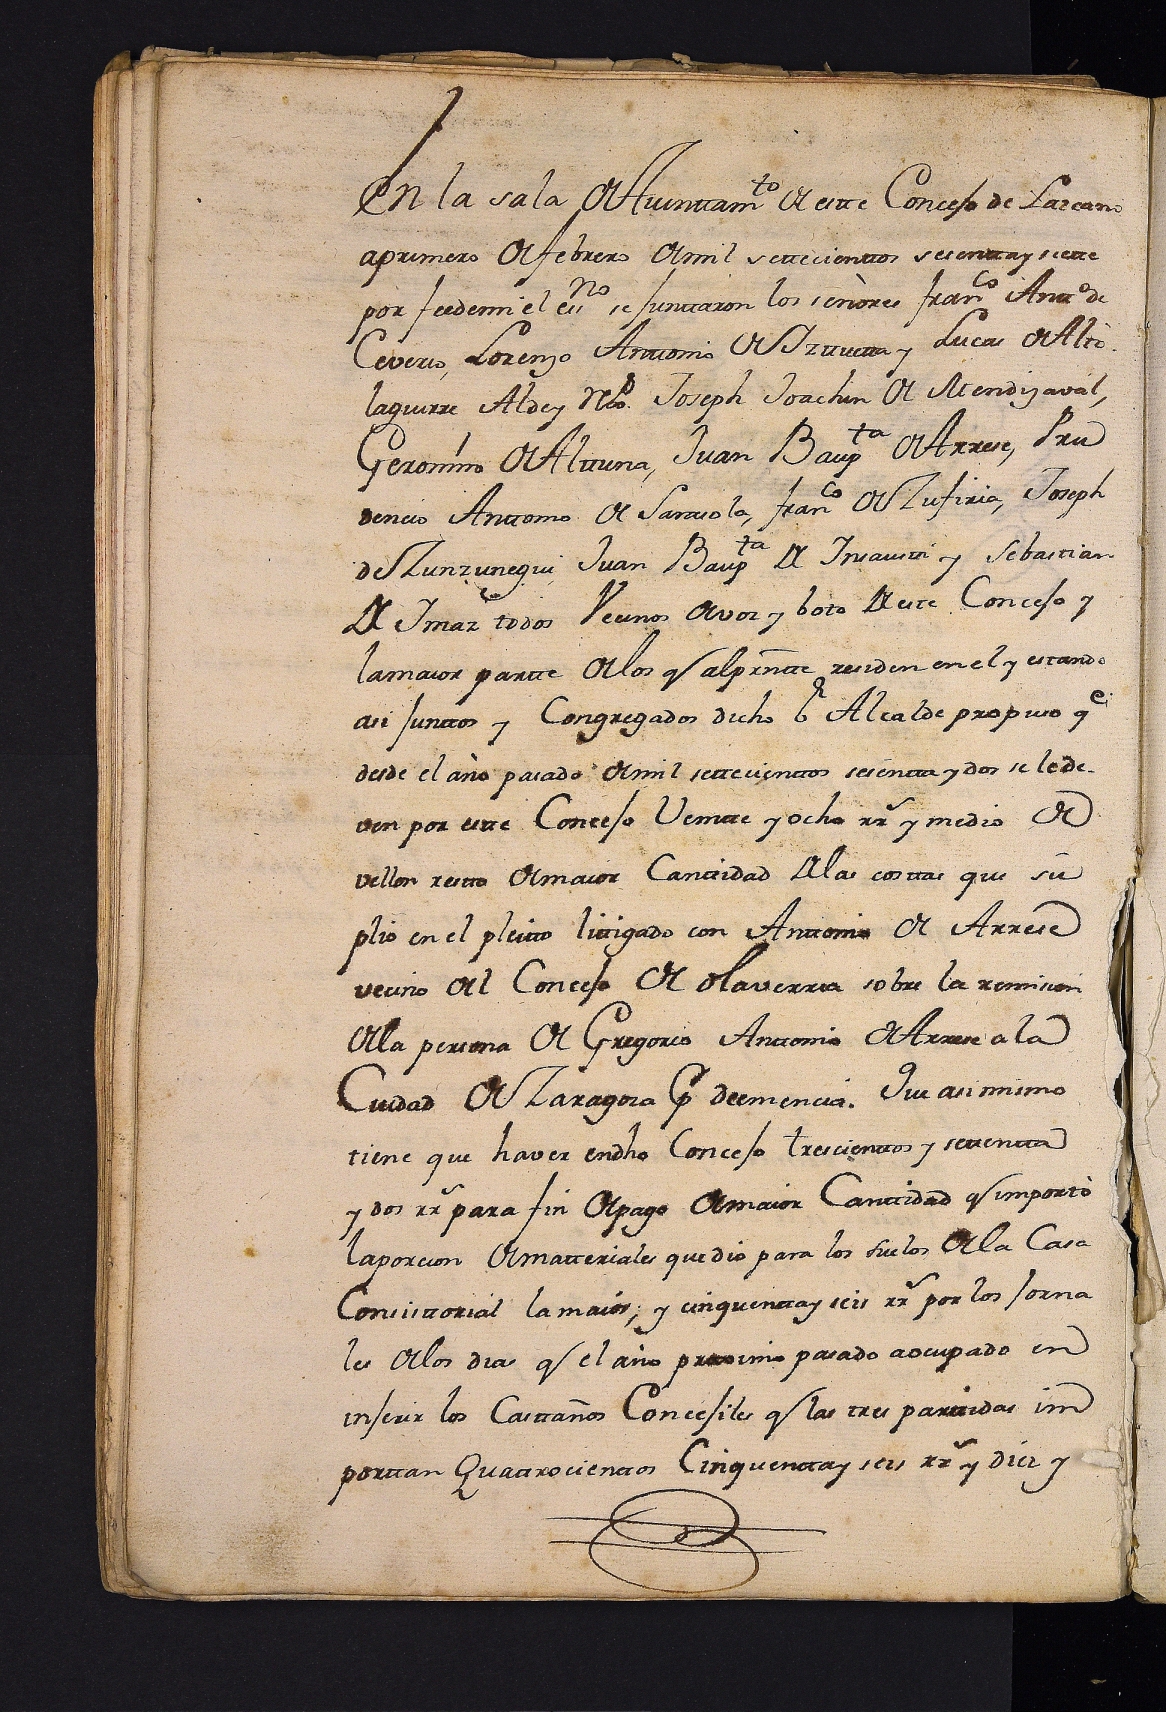 En la sala de Aiuntam.to de este Concejo de Lazcano
a primero de febrero de mil settecienttos sesentta y siette
por fee de mi el ess.no se junttaron los señores fran.co Antt.o de
Ceverio, Lorenzo Anttonio de Izttuetta y Lucas de Alto
laguirre Alde y Joseph Joachin de Mendizaval,
Geronimo de Alttuna, Juan Baup.ta de Arrese, Pru
dencio Anttonio de Sarriola, fran.co de Zufiria, Joseph
de Zunzunegui Juan Baup.ta de Insausti y Sebastian
de Imaz todos Vecinos de voz y boto de este Concejo y
la maior partte de los q̃ al pr̃ntte residen en el y estando
asi junttos y Congregados dicho s.r Alcalde propuso q.e
desde el año pasado de mil settecienttos sesentta y dos se le de
ven por este Concejo Veintte y ocho rr.s y medio de
vellon restto de maior Canttidad de las costtas que su
plio en el pleitto littigado con Anttonio de Arrese
vecino del Concejo de olaverria sobre la remision
de la persona de Gregorio Anttonio de Arrese a la
Ciudad de Zaragoza p.r demencia. Que asi mismo
tiene que haver en dho Concejo trescienttos y settentta
y dos rr.s para fin de pago de maior Canttidad q̃ importò
la porcion de matteriales que dio para los suelos de la Casa
Consisttorial la maior; y cinquentta y seis rr.s por los jorna
les de los dias q̃ el año proximo pasado a ocupado en
inserir los Casttaños Concejiles q̃ las tres parttidas im
porttan Quattrocienttos Cinquentta y seis rr.s y diez y